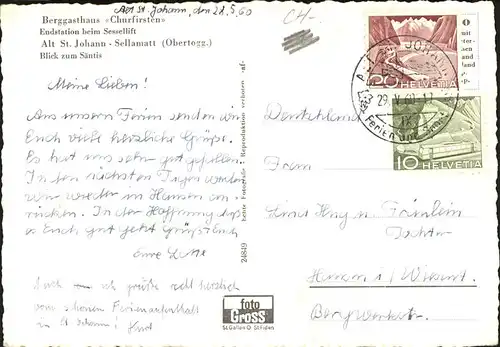 Alt St. Johann, den 28.5.60
Berggasthaus «Churfirsten»
Endstation beim Sessellift
Alt St. Johann - Sellamatt (Obertogg.)
Blick zum Säntis
Meine Lieben!
Aus unsern Ferien senden wir
Euch viele herzliche Grüße.
Es hat uns sehr gut gefallen.
In den nächsten Tagen werden
wir wieder in Hamm
rücken. In der Hoffnung das
es Euch gut geht grüßt Euch
Eure
Auch ich grüße recht herzlich
vom schönen Ferienaufenthalt
in St Johann!
Echte Fotografie - Reproduktion verboten
24849
foto
Gross
St.Gallen O St.Fiden
CH-
20 HELVETIA
10 HELVETIA
29.V.60.-17
Ferien und Sport
Deutschland
Fam.
u. Fräulein
Tochter
Hamm i/ Westf.